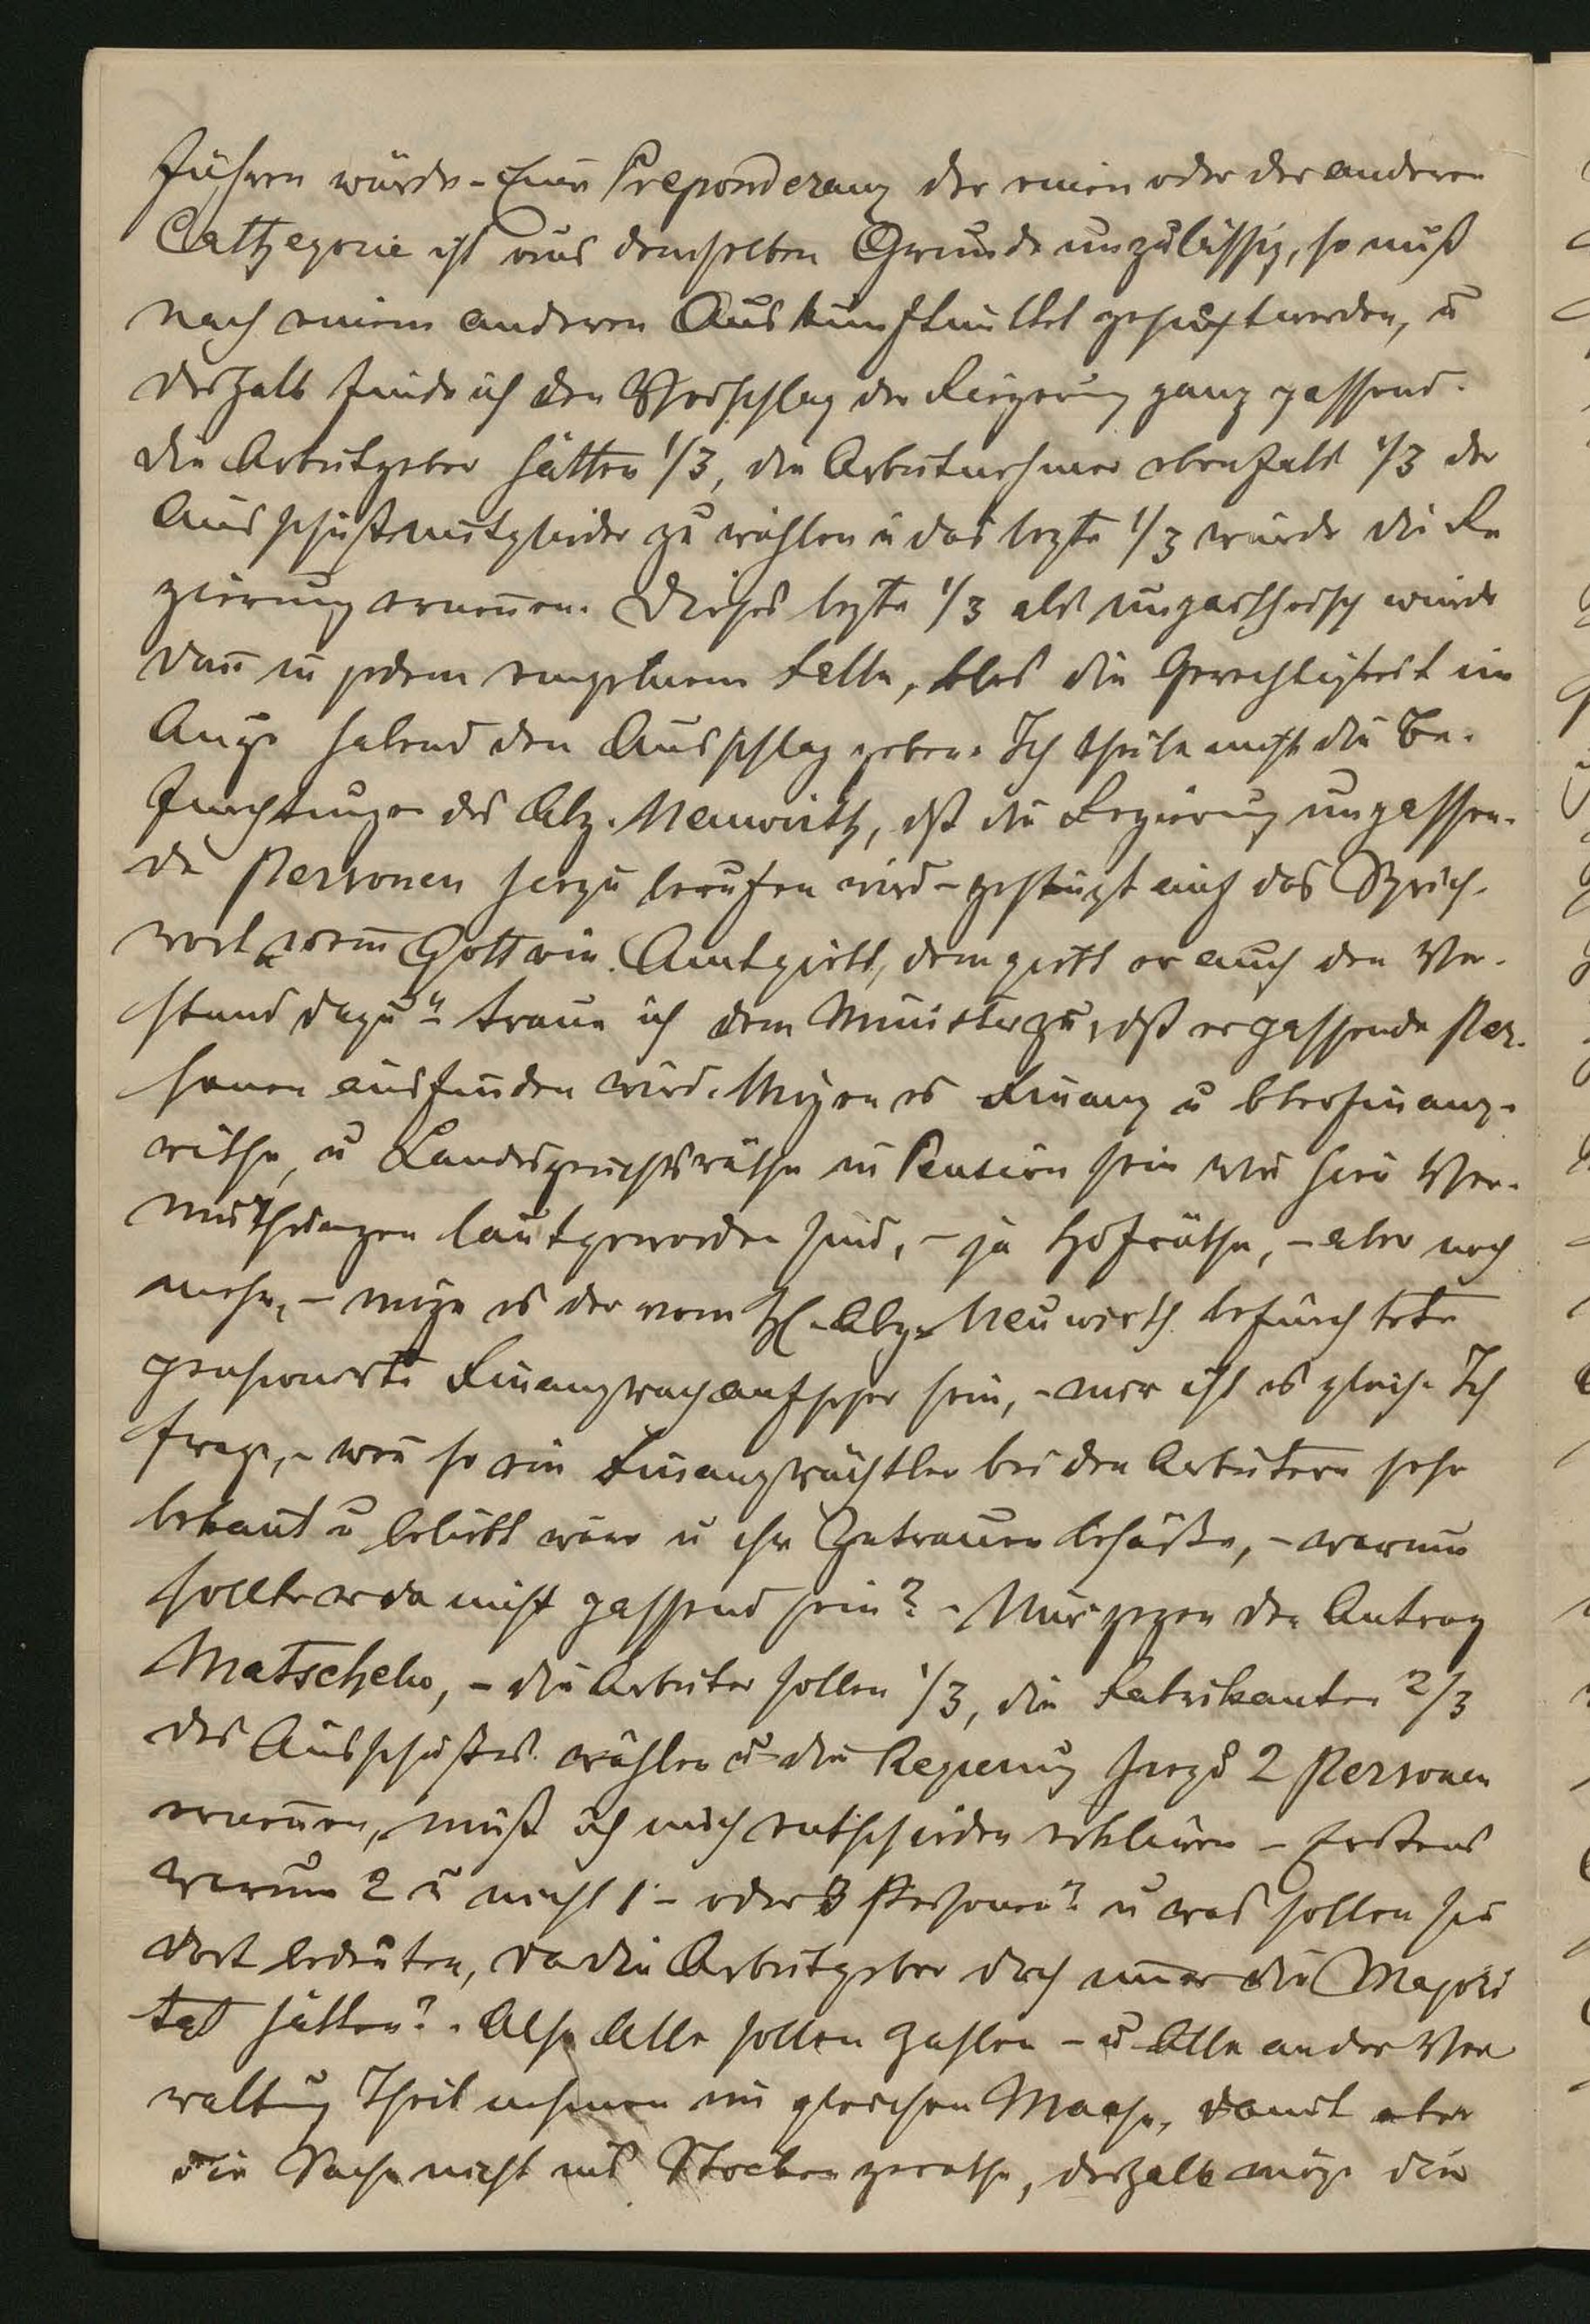 führen würde. – Eine Preponderanz der einen oder der anderen
Cathegorie ist aus demselben Grunde unzulässig, so muß
nach einem anderen Auskunftmittel gesucht werden, u
deshalb finde ich den Vorschlag der Regierung ganz passend.
Die Arbeitgeber hätten 1/3, die Arbeitnehmer ebenfalls 1/3 der
Ausschußmitglieder zu wählen u das lezte 1/3 würde die Re
gierung ernen̄en. Dieses lezte 1/3 als unparteiisch würde
dan̄ in jedem einzelnem Falle, blos die Gerechtigkeit im
Auge habend den Ausschlag geben. Ich theile nicht die Be-
fürchtungen des Abg. Neuwirth, dß die Regierung unpassen-
de Personen hiezu berufen wird – gestüzt auf das Sprich-
wort „wem Gott ein Amt giebt, dem giebt er auch den Ver-
stand dazu“ – traue ich dem Minister zu, dß er passende Per-
sonen ausfinden wird. Mögen es Finanz u Oberfinanz-
räthe, u Landesgerichtsräthe in Pension sein wie hier Ver-
muthungen laut geworden sind, – ja Hofräthe, – aber noch
mehr, – möge es der vom H. Abg. Neuwirth befürchtete
pensionirte Finanzwachaufseher sein, – mir ist es gleich. Ich
frage, – wen̄ so ein Finanzwächtler bei den Arbeitern sehr
bekan̄t u beliebt wäre u ihr Zutrauen besäße, – warum
sollte er da nicht passend sein? – Nur gegen den Antrag
Matscheko, – die Arbeiter sollen 1/3, die Fabrikanten 2/3
des Ausschußes wählen u die Regierung hiezu 2 Personen
ernen̄en, muß ich mich entschieden erklären – Erstens
warum 2 u nicht 1 – oder 3 Personen? u was sollen sie
dort bedeuten, da die Arbeitgeber doch im̄er die Majori
tät hätten? – Also Alle sollen zahlen – u Alle an der Ver
waltung Theil nehmen im gleichen Maaße, damit aber
die Sache nicht ins Stocken gerathe, deshalb möge die